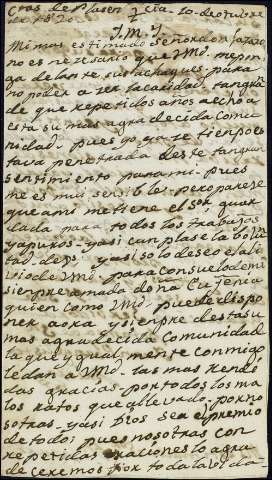 cras de Plasencia 10 de otubre
de 1820
J. M. J.
Mi mas estimado señor don
no es nesesario que Vmd. me pon
ga delante sus achaques para
no poder aser la caridad tan gran
de que repetidos años a echo a
esta su mas agradecida comu
nidad pues yo ya se tienpo es
tava penetrada deste tan gran
sentimiento para mi pues
me es mui sensible pero parese
que a mi me tiene el Sor. guar
dada para todos los trabajos
y apuros y asi cunplase la bolun
tad de Dios y asi solo deseo el ali
vio de Vmd. para consuelo de mi
sienpre amada doña Eujenia
quien como Vmd. puede dispo
ner aora y sienpre desta su
mas agradecida comunidad
la que ygual mente conmigo
le dan a Vmd. las mas rendi
das gracias por todos los ma
los ratos que a llevado por no
sotras y asi Dios sea el premio
de todo pues nosotras con
repetidas oraciones lo agra
deceremos por toda la vida